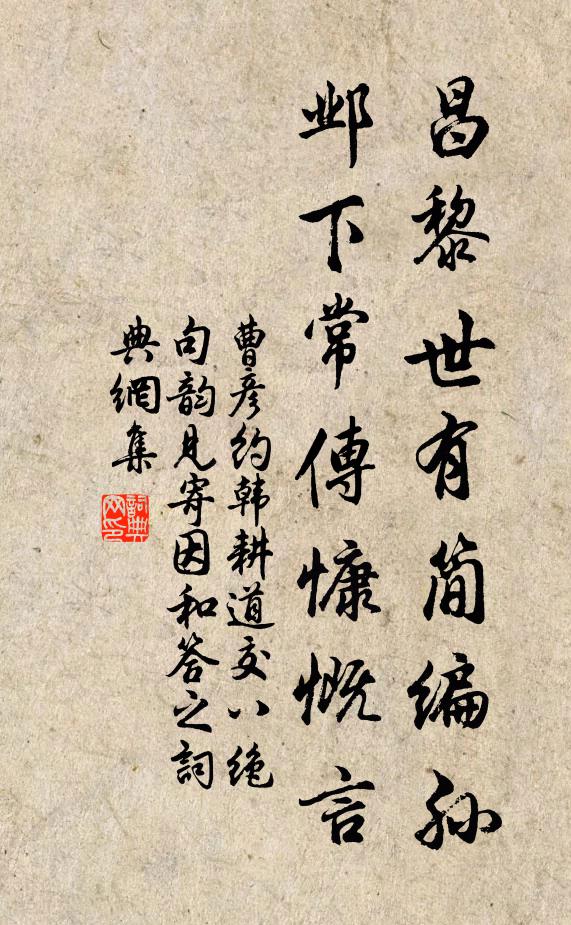 昌黎世有简编孙
邺下常傳慷慨言
曹彦约韩耕道交八绝
句韵見寄因和答之詞
典網集
詞典
网印